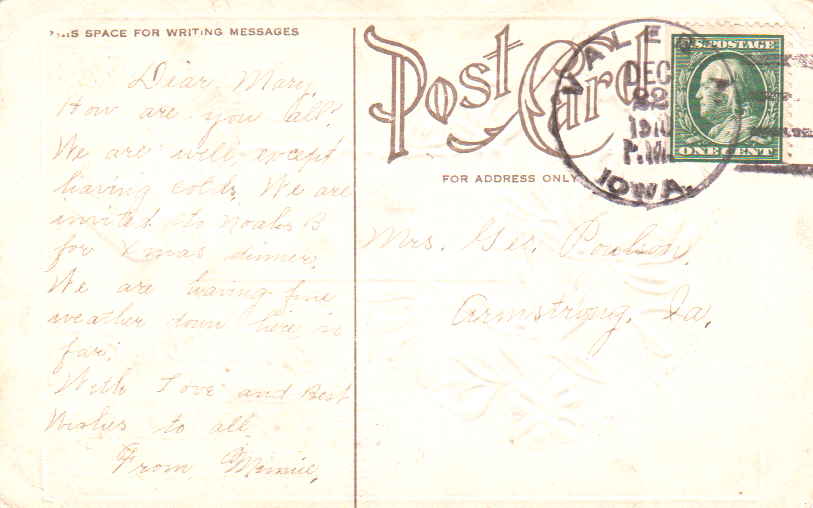 THIS SPACE FOR WRITING MESSAGES
Dear Mary,
How are you all?
We are well except
having colds. We are
invited to Noahs B
for Xmas dinner.
We are having fine
weather down here so
far.
With Love and Best
Wishes to all
From Minnie,
Post Card
FOR ADDRESS ONLY
VALE
DEC
22
1910
P.M.
IOWA.
U.S. POSTAGE
ONE CENT
Mrs. Geo.
Armstrong, Ia,